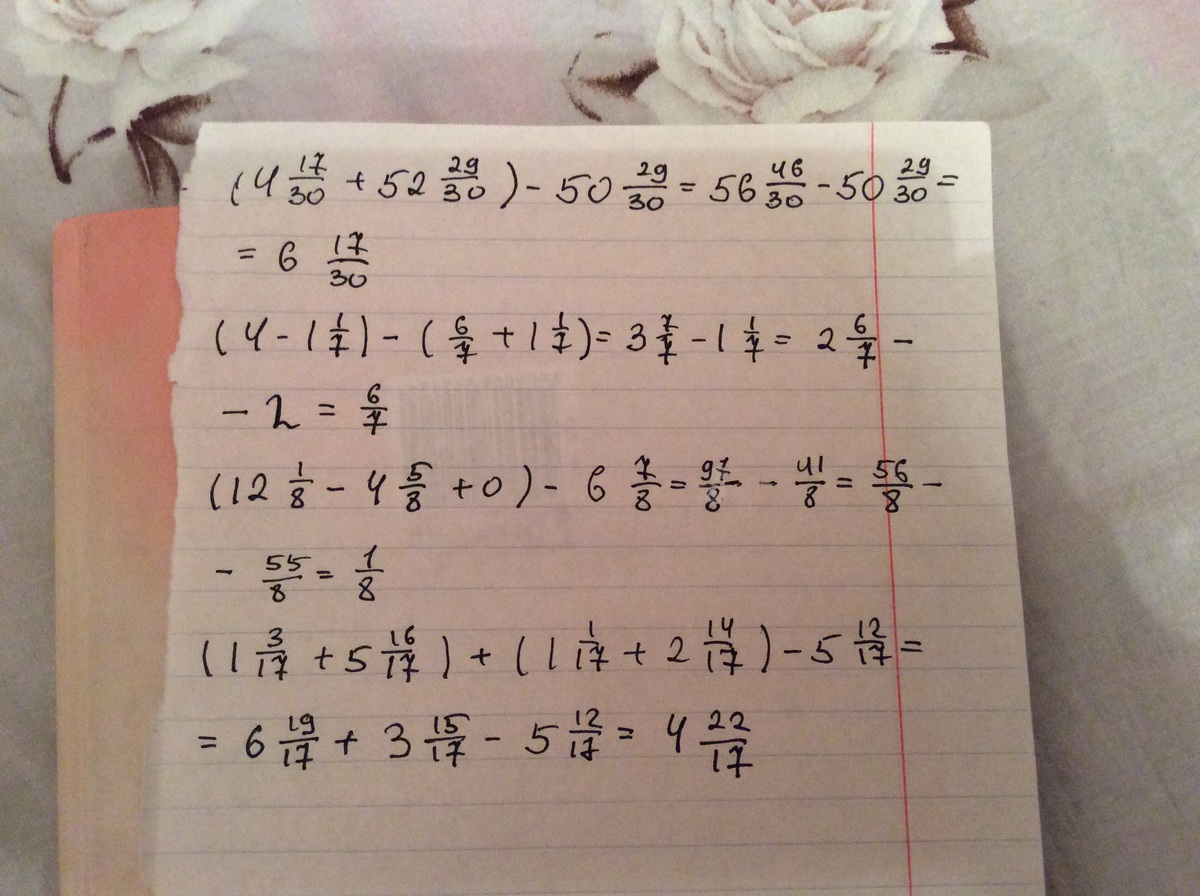 (4 17/30 + 52 29/30) - 50 29/30 = 56 46/30 - 50 29/30 =
= 6 17/30
(4 - 1 1/7) - (6/7 + 1 1/7) = 3 7/7 - 1 1/7 = 2 6/7 -
- 2 = 6/7
(12 1/8 - 4 5/8 + 0) - 6 7/8 = 97/8 - - 41/8 = 56/8 -
- 55/8 = 1/8
(1 3/17 + 5 16/17) + (1 1/17 + 2 14/17) - 5 12/17 =
= 6 19/17 + 3 15/17 - 5 12/17 = 4 22/17